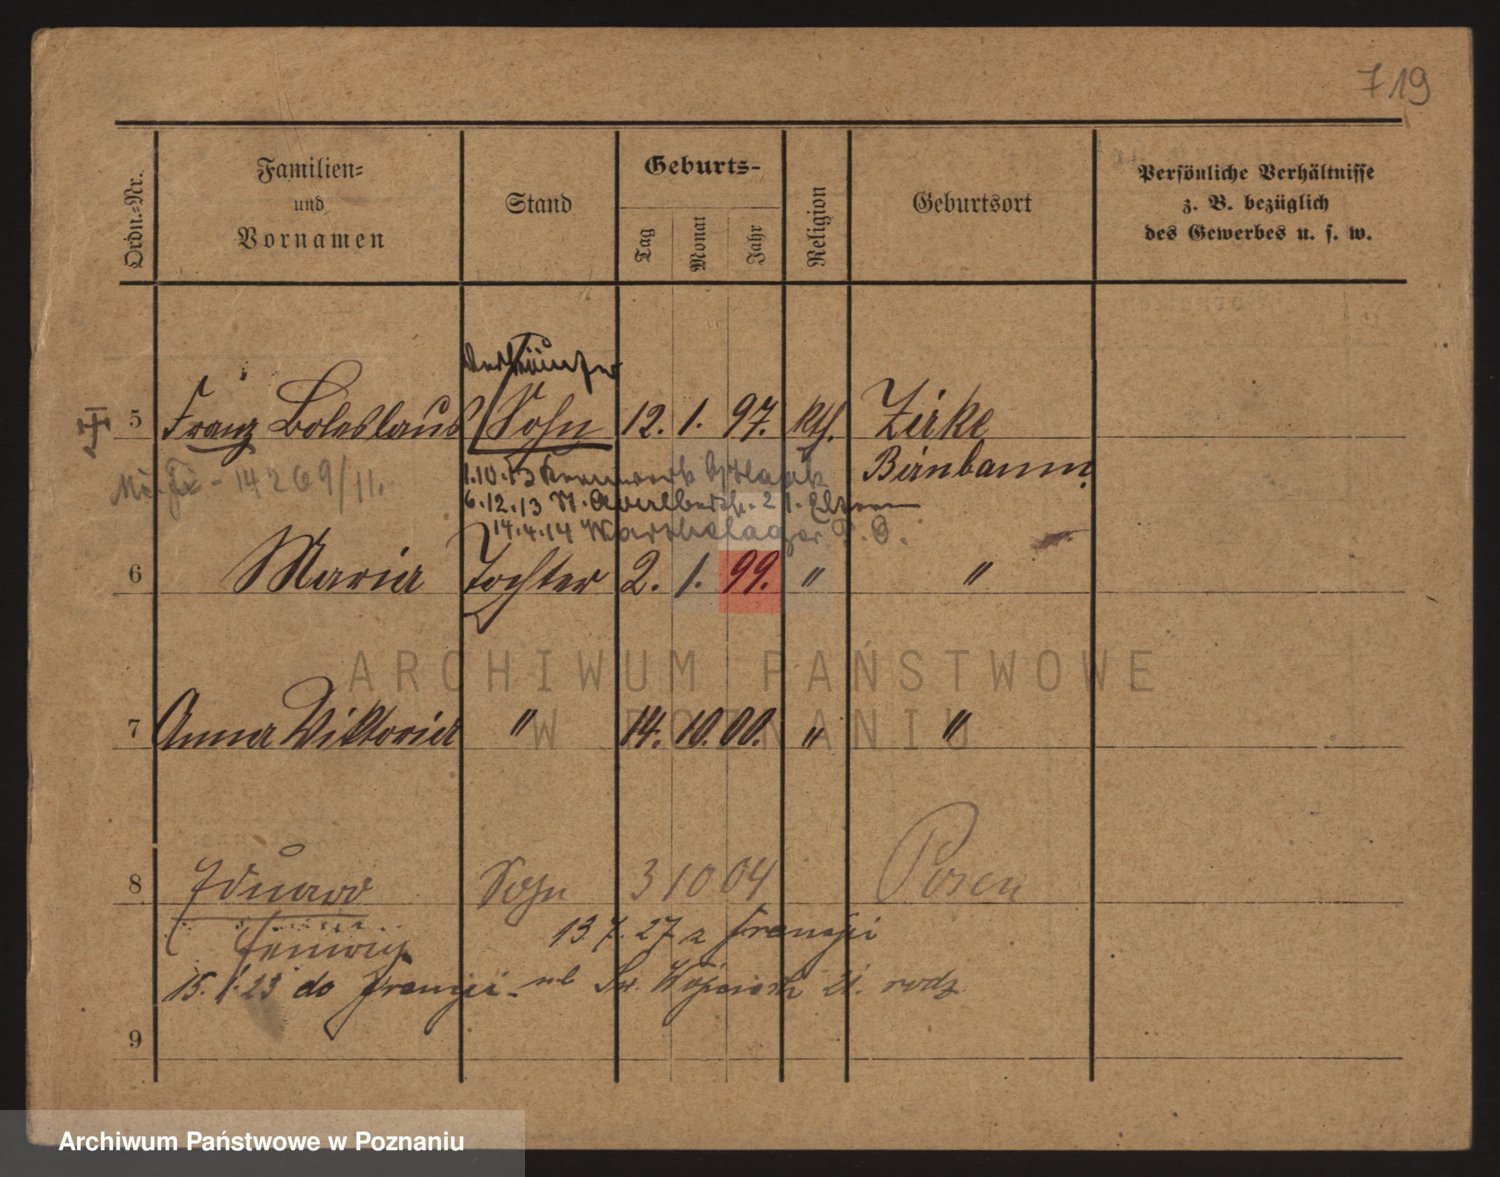 719
Ordn.-Nr.
Familien-
und
Vornamen
Stand
Geburts-
Tag
Monat
Jahr
Religion
Geburtsort
Persönliche Verhältnisse
z. B. bezüglich
des Gewerbes u. s. w.
5 Franz Boleslaus Sohn 12. 1. 97. kth. Zirke
Birnbaum
14269/11.
1.10.13
6.12.13 St. Adalbertstr. 2 1. Eltern
14.4.14 Warthelager
6 Maria Tochter 2. 1. 99. " "
ARCHIWUM PAŃSTWOWE
W POZNANIU
7 Anna Viktoria " 14. 10. 00. " "
8 Eduard Sohn 3 10 04 Posen
13.7.27 z Francji
15. 1. 23 do Francji - ul Św. Wojciech 21. rodz
9
Archiwum Państwowe w Poznaniu